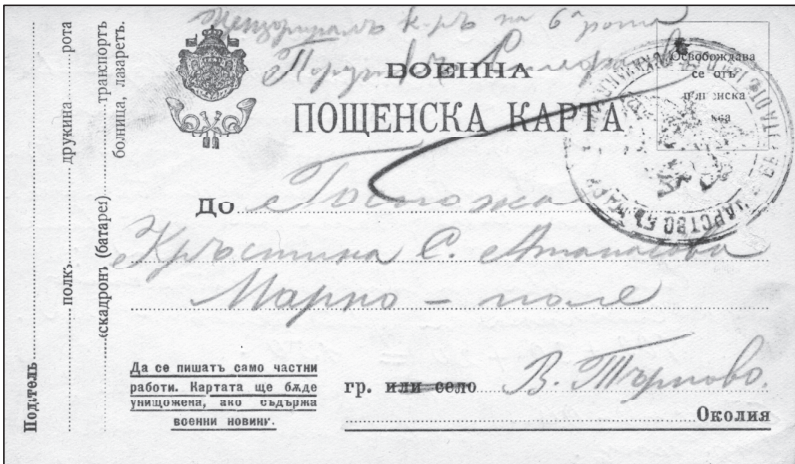 Цензуриралъ к-ръ на 6а рота
Поручикъ
ВОЕННА
ПОЩЕНСКА КАРТА
Освобождава
се отъ
пощенска
такса
До Госпожа
Кръстина С. Атанасова
Марно - поле
гр. или село В. Търново.
Околия
Да се пишатъ само частни
работи. Картата ще бѫде
унищожена, ако съдържа
военни новини.
Подателъ
полкъ дружина рота
(ескадронъ (батарея) транспортъ
болница, лазаретъ.
ЦАРСТВО БЪЛГАРИЯ